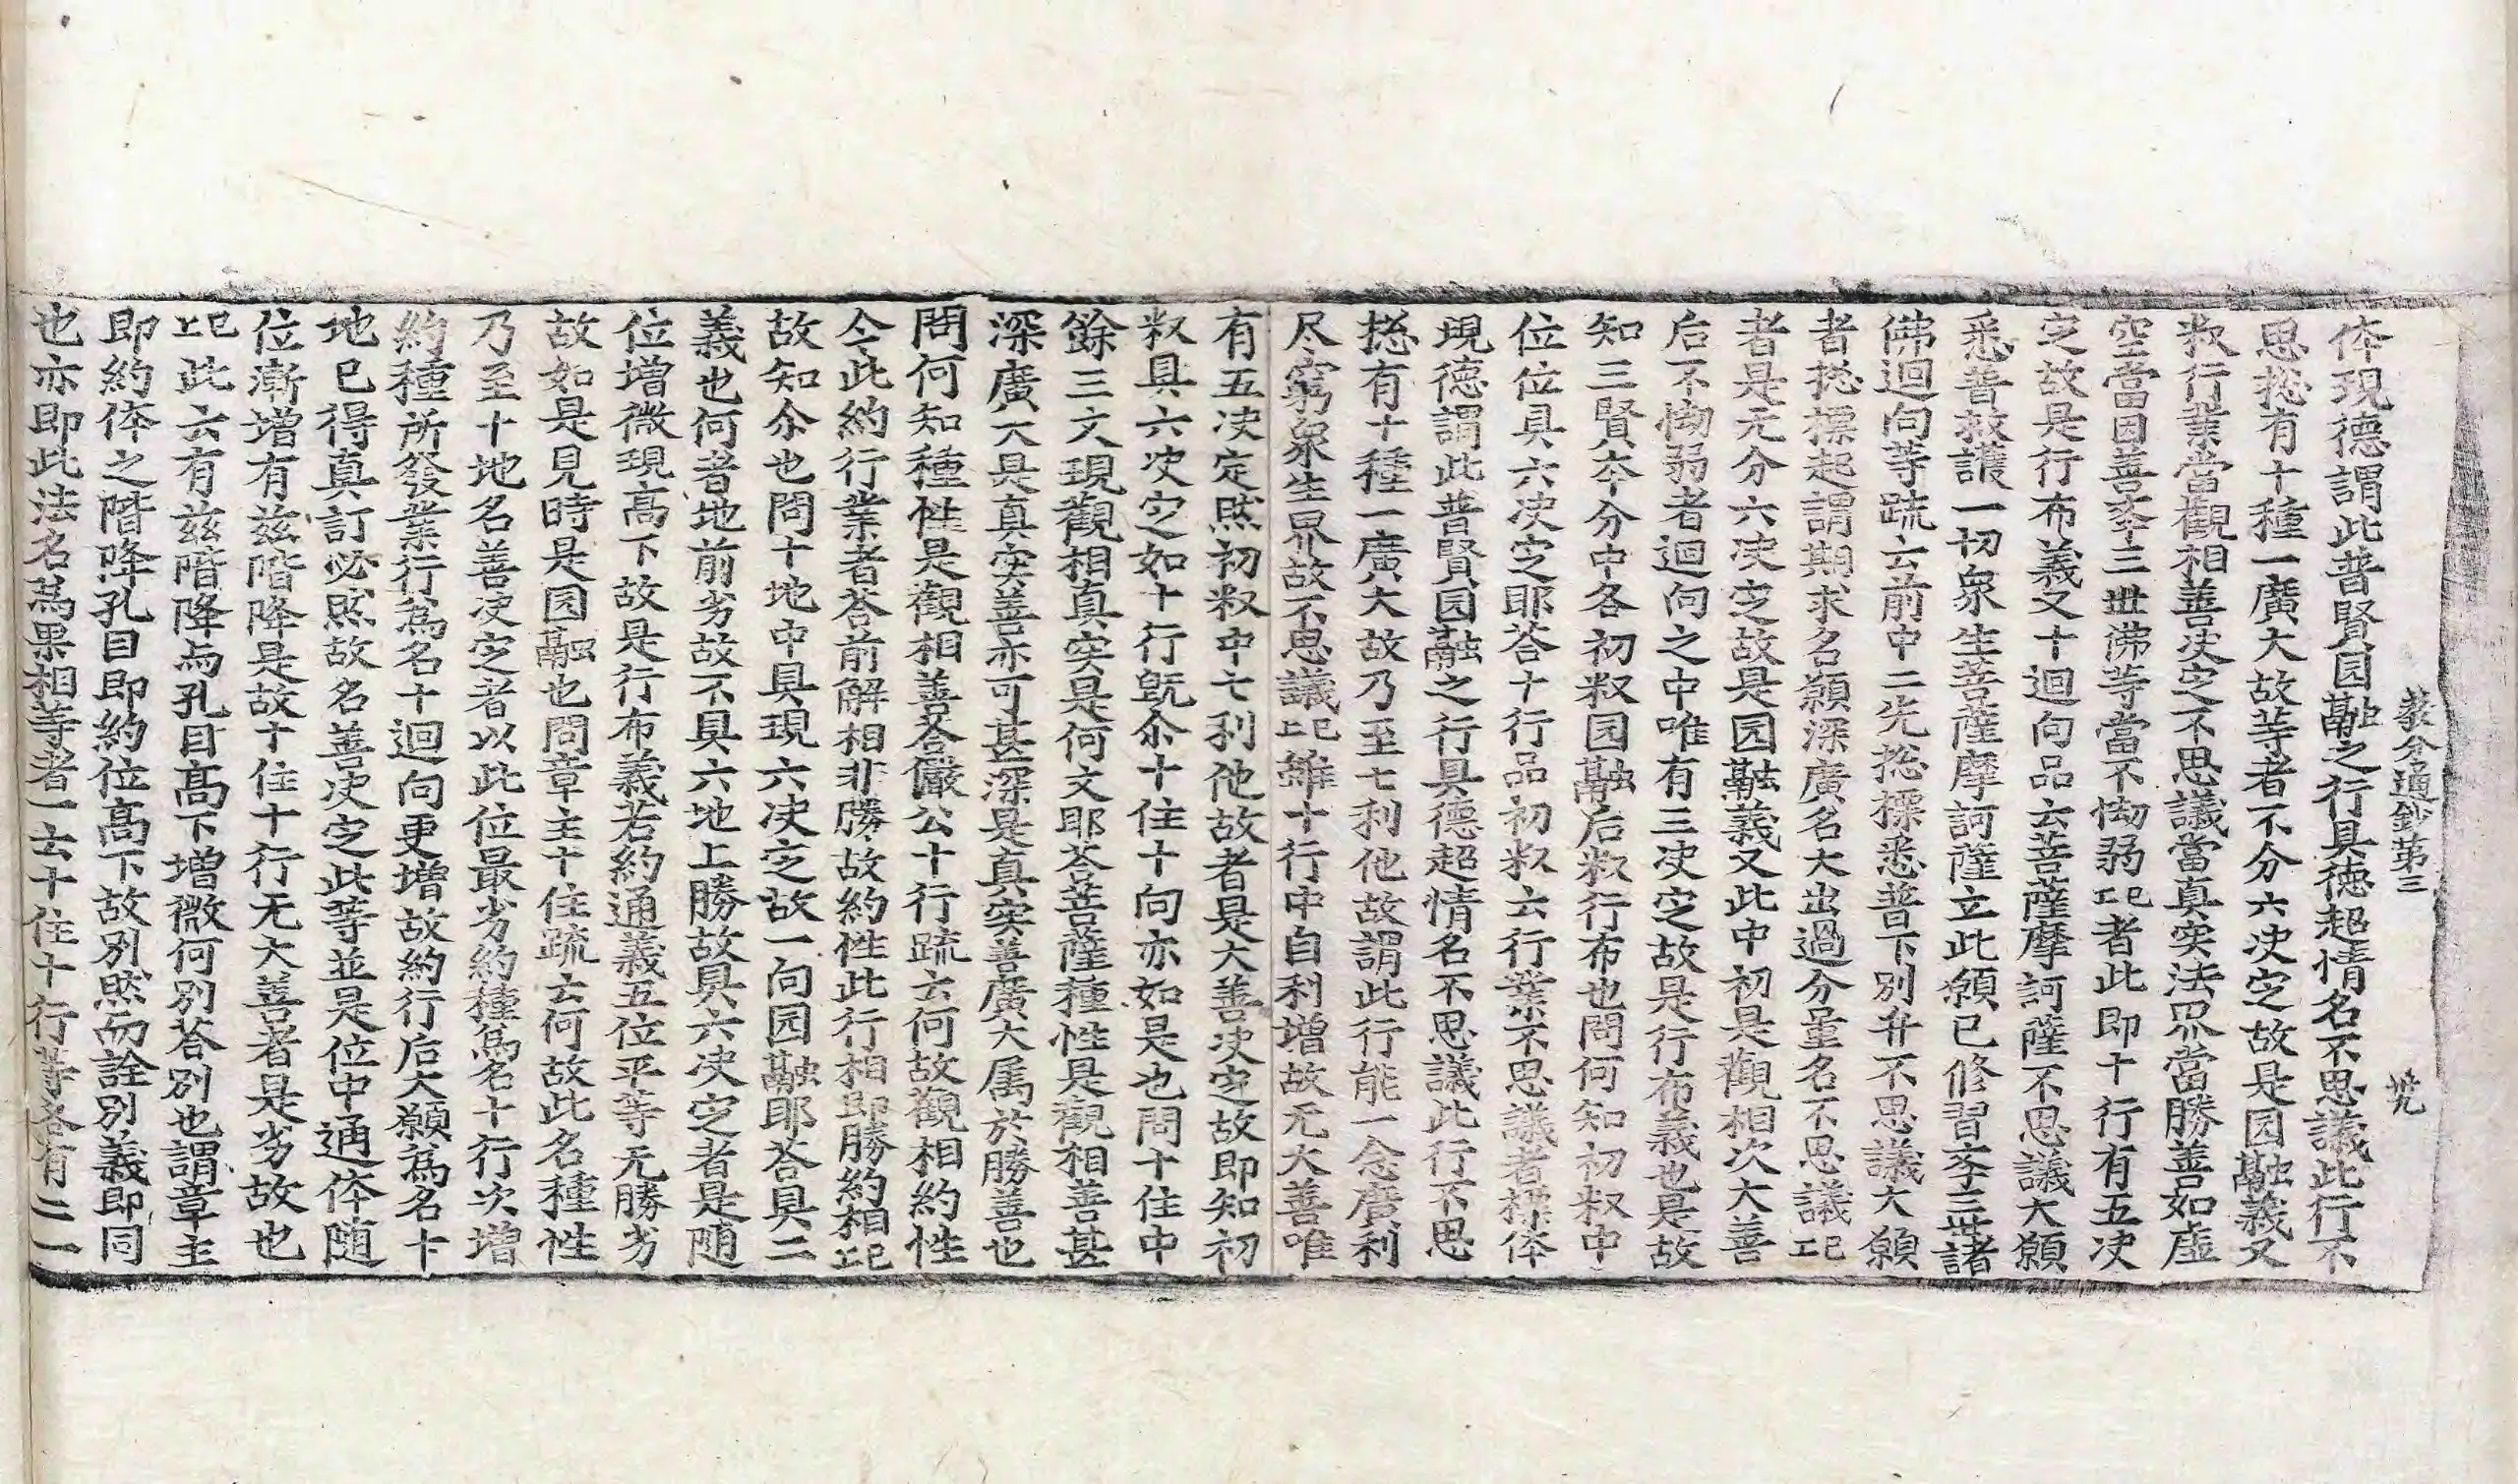 教分通鈔第三
体現德謂此普賢园融之行具德超情名不思議此行不
思捴有十種一廣大故等者不分六决㝎故是园融義又
叔行業當觀相善决㝎不思議當真実法界當勝善如虛
空當因善夲三世佛等當不㤕弱㔾者此即十行有五决
㝎故是行布義又十迴向品云菩薩摩訶薩不思議大願
悉普救護一切衆生菩薩摩訶薩立此願已修習夲三世諸
佛迴向等疏云前中二先捴摽悉普下別升不思議大願
者捴摽起謂期求名願深廣名大出過分量名不思議㔾
者是无分六决㝎故是园融義又此中初是觀相次大善
后不㤕弱者迴向之中唯有三决㝎故是行布義也是故
知三賢夲分中各初叔园融后叔行布也問何知初叔中
位位具六决㝎耶荅十行品初叔云行業不思議者摽体
現德謂此普賢园融之行具德超情名不思議此行不思
捴有十種一廣大故乃至七利他故謂此行能一念廣利
尽窮衆生界故不思議㔾雖十行中自利增故无大善唯
有五决定然初叔中七利他故者是大善决㝎故即知初
叔具六决㝎如十行旣尒十住十向亦如是也問十住中
餘三文現觀相真実是何文耶荅菩薩種性是觀相善甚
深廣大是真実善亦可甚深是真実善廣大属於勝善也
問何知種性是觀相善荅儼公十行疏云何故觀相約性
今此約行業者荅前解相非勝故約性此行相即勝約相㔾
故知尒也問十地中具現六决㝎故一向园融耶荅具二
義也何者地前劣故不具六地上勝故具六决㝎者是随
位增微現高下故是行布義若約通義五位平等无勝劣
故如是見時是园融也問章主十住疏云何故此名種性
乃至十地名善决㝎者以此位最劣約種為名十行次增
約種所發業行為名十迴向更增故約行后大願為名十
地已得真訂必然故名善决㝎此等並是位中通体随
位漸增有玆階降是故十住十行无大善者是劣故也
㔾此云有玆階降与孔目高下增微何別荅別也謂章主
即約体之階降孔目即約位高下故別然而詮別義即同
也亦即此法名爲果相等者一云十住十行等各有三一